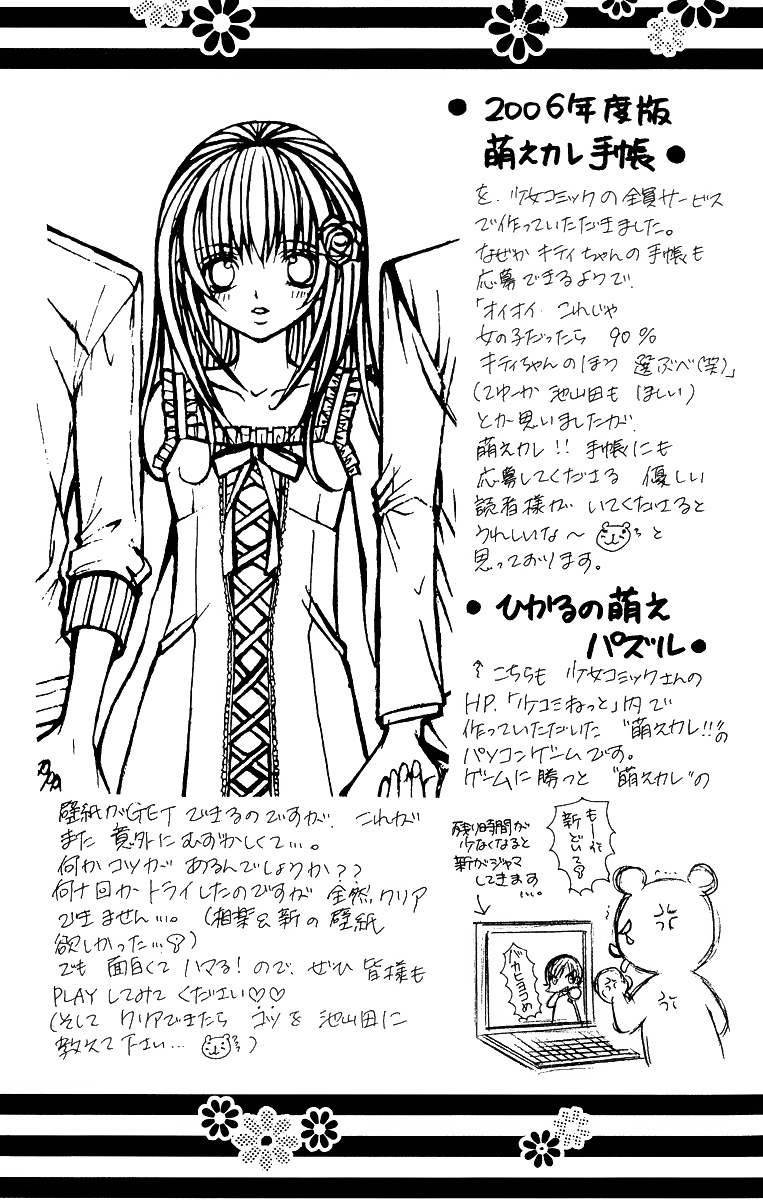 ● 2006年度版
萌えカレ手帳 ●
を、少女コミックの全員サービス
で作っていただきました。
なぜか キティちゃんの手帳も
応募できるようで、
「オイオイ これじゃ
女の子だったら 90%
キティちゃんのほう 選ぶべ(笑)」
(てゆーか 池山田も ほしい)
とか思いましたが、
萌えカレ!! 手帳にも
応募してくださる 優しい
読者様が いてくださると
うれしいな〜 と
思っております。
● ひかるの萌え
パズル ●
↑ こちらも 少女コミックさんの
HP、「少コミねっと」内で
作っていただいた "萌えカレ!!"の
パソコンゲームです。
ゲームに勝つと "萌えカレ"の
壁紙がGET できるのですが、これが
また 意外にむずかしくて…。
何かコツが あるんでしょうか??
何十回かトライしたのですが 全然クリア
できません…。(相葉&新の壁紙
欲しかった…)
でも 面白くて ハマる!ので、ぜひ 皆様も
PLAY してみて ください♡♡
(そして クリアできたら コツを 池山田に
教えて下さい… )
残り時間が
少なくなると
新がジャマ
してきます
…。
もー
新
どいてろ
バカヒヨコめ